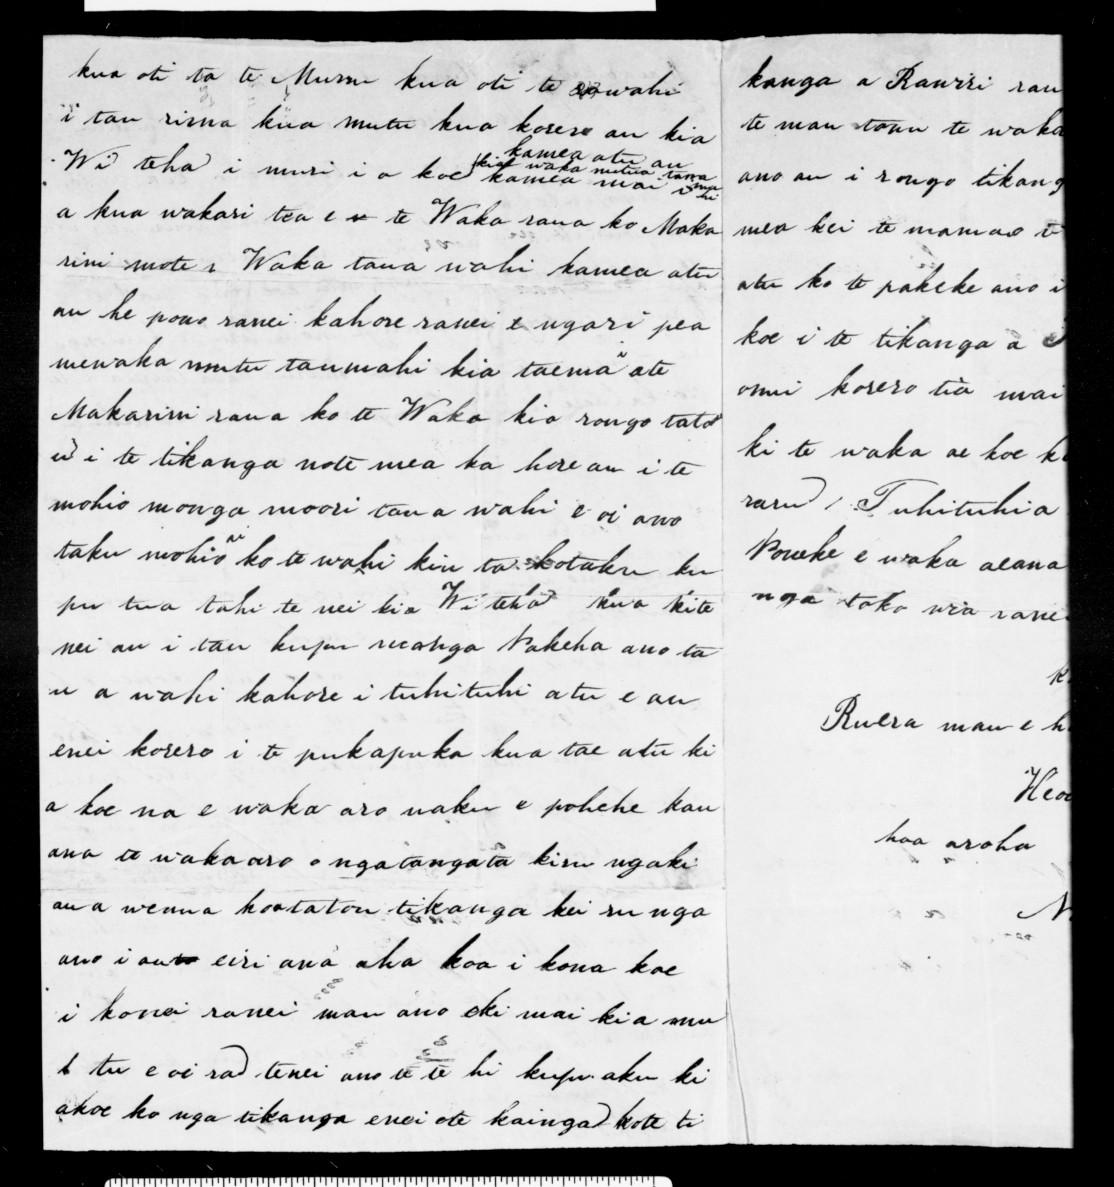 kua oti ta te Muru kua oti te wahi
i tau rima kua mutu kua korero au kia
kamea atu au
kia waka mutua tana mahi
Wi teha i muri i a koe kamea mai i
a kua wakari tea e te Waka raua ko Maka
rini mote Waka taua wahi kamea atu
au he pono ranei kahore ranei e ngari pea
mewaka mutu taumahi kia taema ate
Makarini raua ko te Waka kia rongo tato
u i te tikanga note mea ka hore au i te
mohio monga moori taua wahi e oi ano
taku mohio ko te wahi kiu ta kotaku ku
pu tua tahi te nei kia Wi teha kua kite
nei au i tau kupu monga Pakeha ano ta
u a wahi kahore i tuhituhi atu e au
enei korero i te pukapuka kua tae atu ki
a koe na e waka aro naku e pohehe kau
ana te wakaaro o ngatangata kiru ngaki
aua wenua kootatou tikanga kei ru nga
ano i au eiri ana aha koa i kona koe
i konei ranei mau ano eki mai kia mu
tu e oi ra tenei ano te te hi kupu aku ki
akoe ko nga tikanga enei ote kainga kote ti
kanga a Rawiri rau
te mau tonu te waka
ano au i rongo tikang
mea kei te mamao t
atu ko te pakeke ano i
koe i te tikanga a
omi korero tia mai
ki te waka ae koe k
raru Tuhituhi a
Poneke e waka aeana
nga toko wia ranei
k
Ruera mau e h
Heo
hoa aroha
N